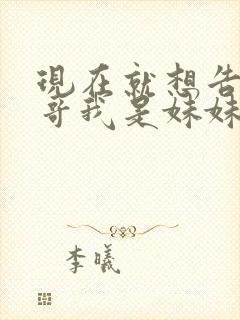 現在就想告
哥我是妹妹
李曦